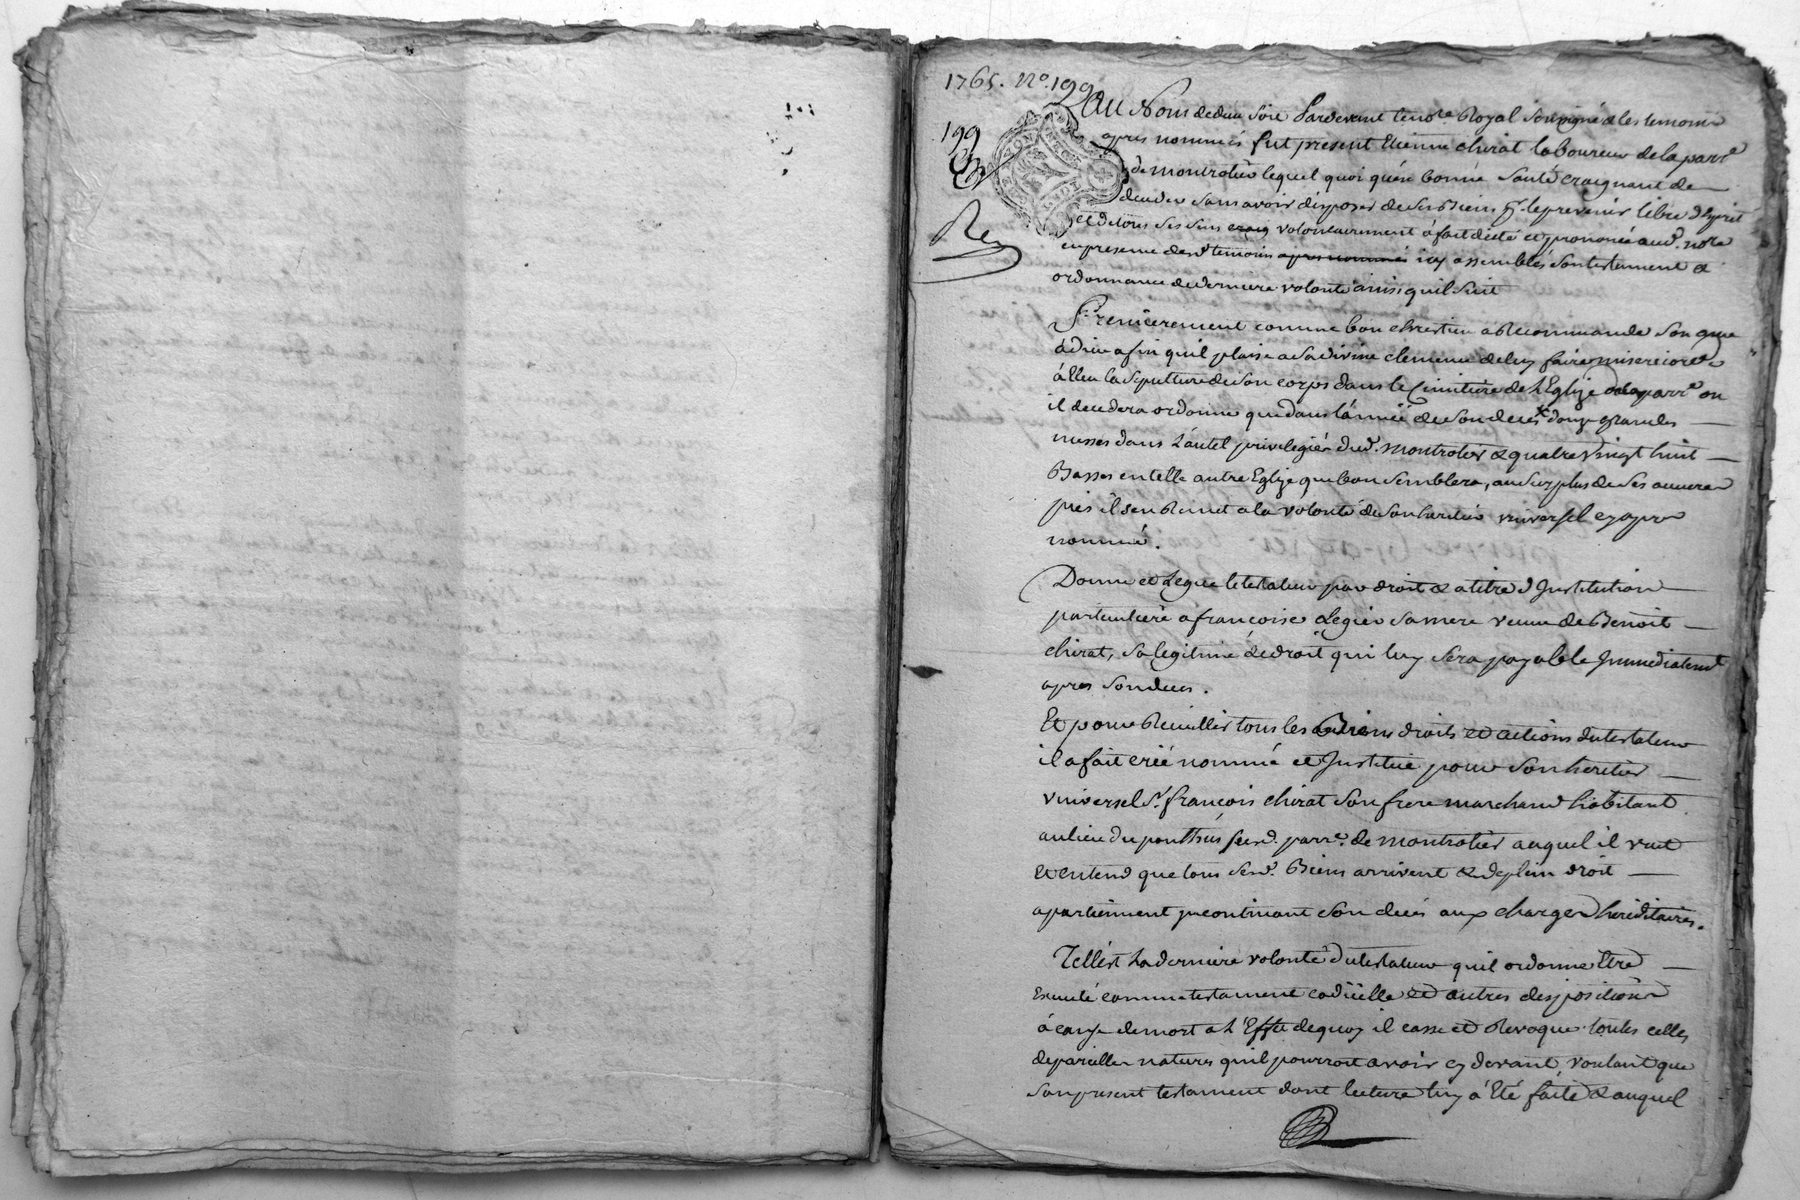 1765. N.º 199
199
Au Nom de dieu soit Pardevant le no.re Royal soussigné & les temoins
apres nommés fut present Etienne chirat laboureur de la parr.e
de montrotier lequel quoi qu'en bonne santé craignant de
deceder sans avoir disposer de ses Biens p.r le prevenir libre d'Esprit
et de tous ses sens volontairement á fait dicté et prononcé aud. no.re
en presence desd. temoins apres nommés icy assemblés son testament et
ordonnance de derniere volonté ainsi quil suit
Premierement comme bon chrestien a Recommandé son ame
à dieu afin quil plaise a sa divine clemence de luy faire misericorde
á Elu la sepulture de son corps dans le Cimitiere de L'Eglize de la parr.e ou
il decedera ordonne que dans l'année de son deces douze grandes
messes dans L'autel privilegier dud. montrotier & quatre vingt huit
Basses en telle autre Eglize que bon semblera, au surplus de ses œuvres
pies il s'en Remet a la volonté de son heritier universel cy apres
nommé.
Donne et Legue le testateur par droit & a titre d'Institution
particuliere a francoise Legier sa mere veuve de Benoit
chirat, sa legitime de droit qui luy sera payable Immediatem.t
apres son deces.
Et pour Recueillir tous les Biens droits et actions du testateur
il a fait créé nommé et Institué pour son heritier
universel S.r françois chirat son frere marchand habitant
au lieu du parr.e de montrotier auquel il veut
et entend que tous sesd. Biens arrivent & de plein droit
apartiennent incontinant son deces aux charges hereditaires.
Tell'est La derniere volonté du testateur quil ordonne Etre
Executé comme testament codicille et autres dispositions
á cause de mort a L'Effet de quoy il casse et Revoque toutes celles
de pareilles natures quil pourroit avoir cy devant, voulant que
son present testament dont lecture luy á Eté faite & auquel